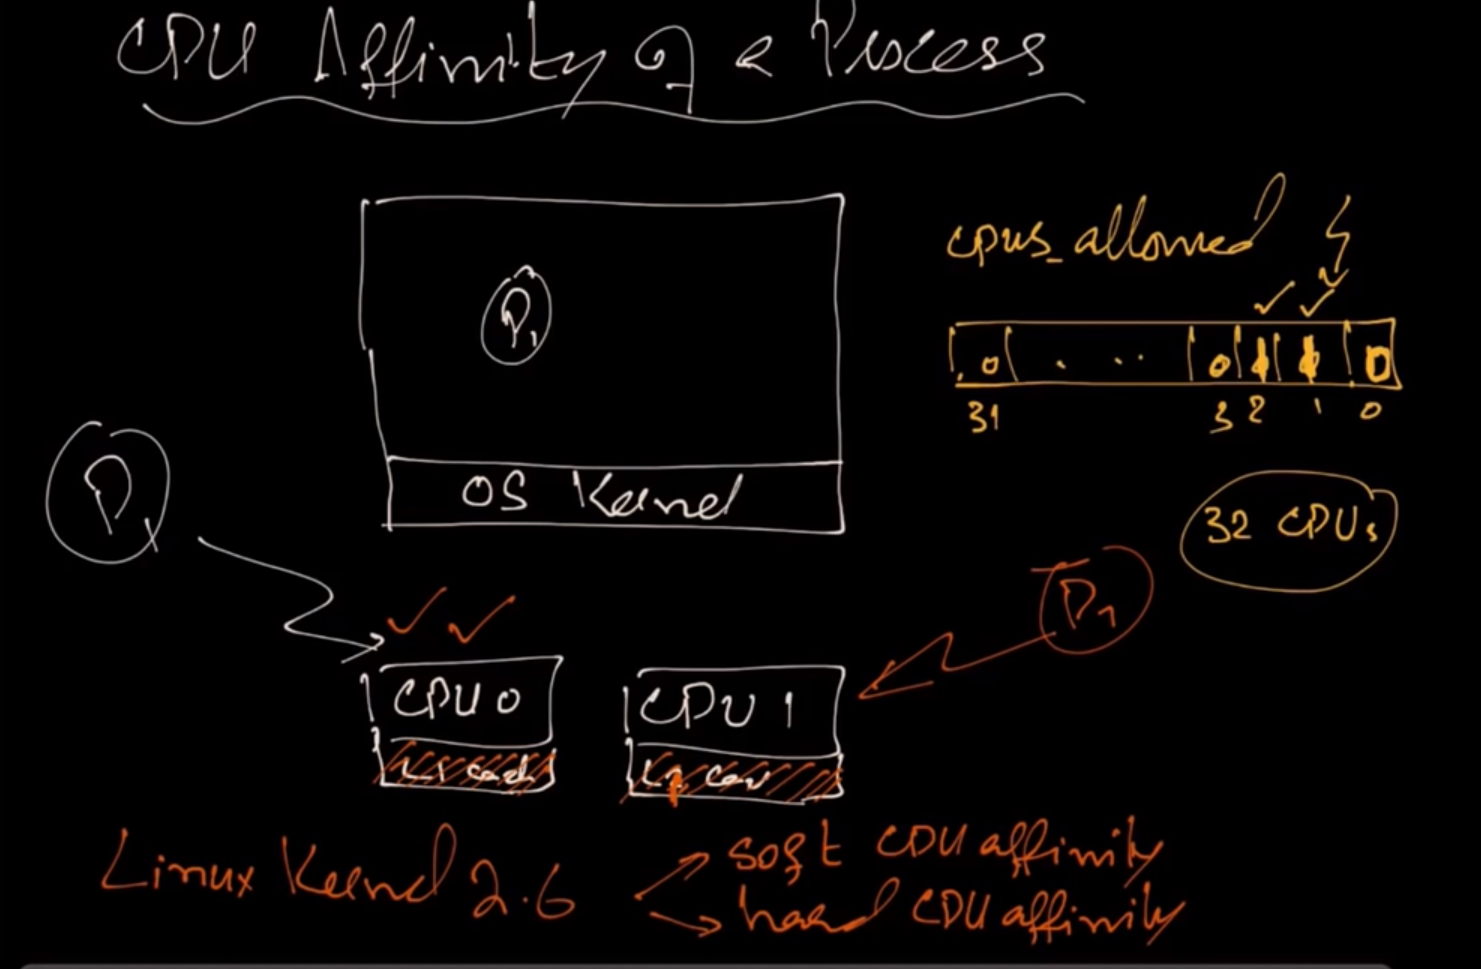 CPU Affinity of a Process
cpus_allowed
P1
0 . . . 0 1 1 0
31 3 2 1 0
OS Kernel
P1
32 CPUs
P1
CPU 0
CPU 1
L1 cach
Linux Kernel 2.6
soft CPU affinity
hard CPU affinity